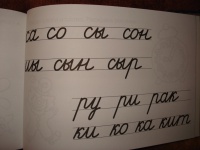 са со сы сон
сын сыр
ру ри рак
ки ко ка кит